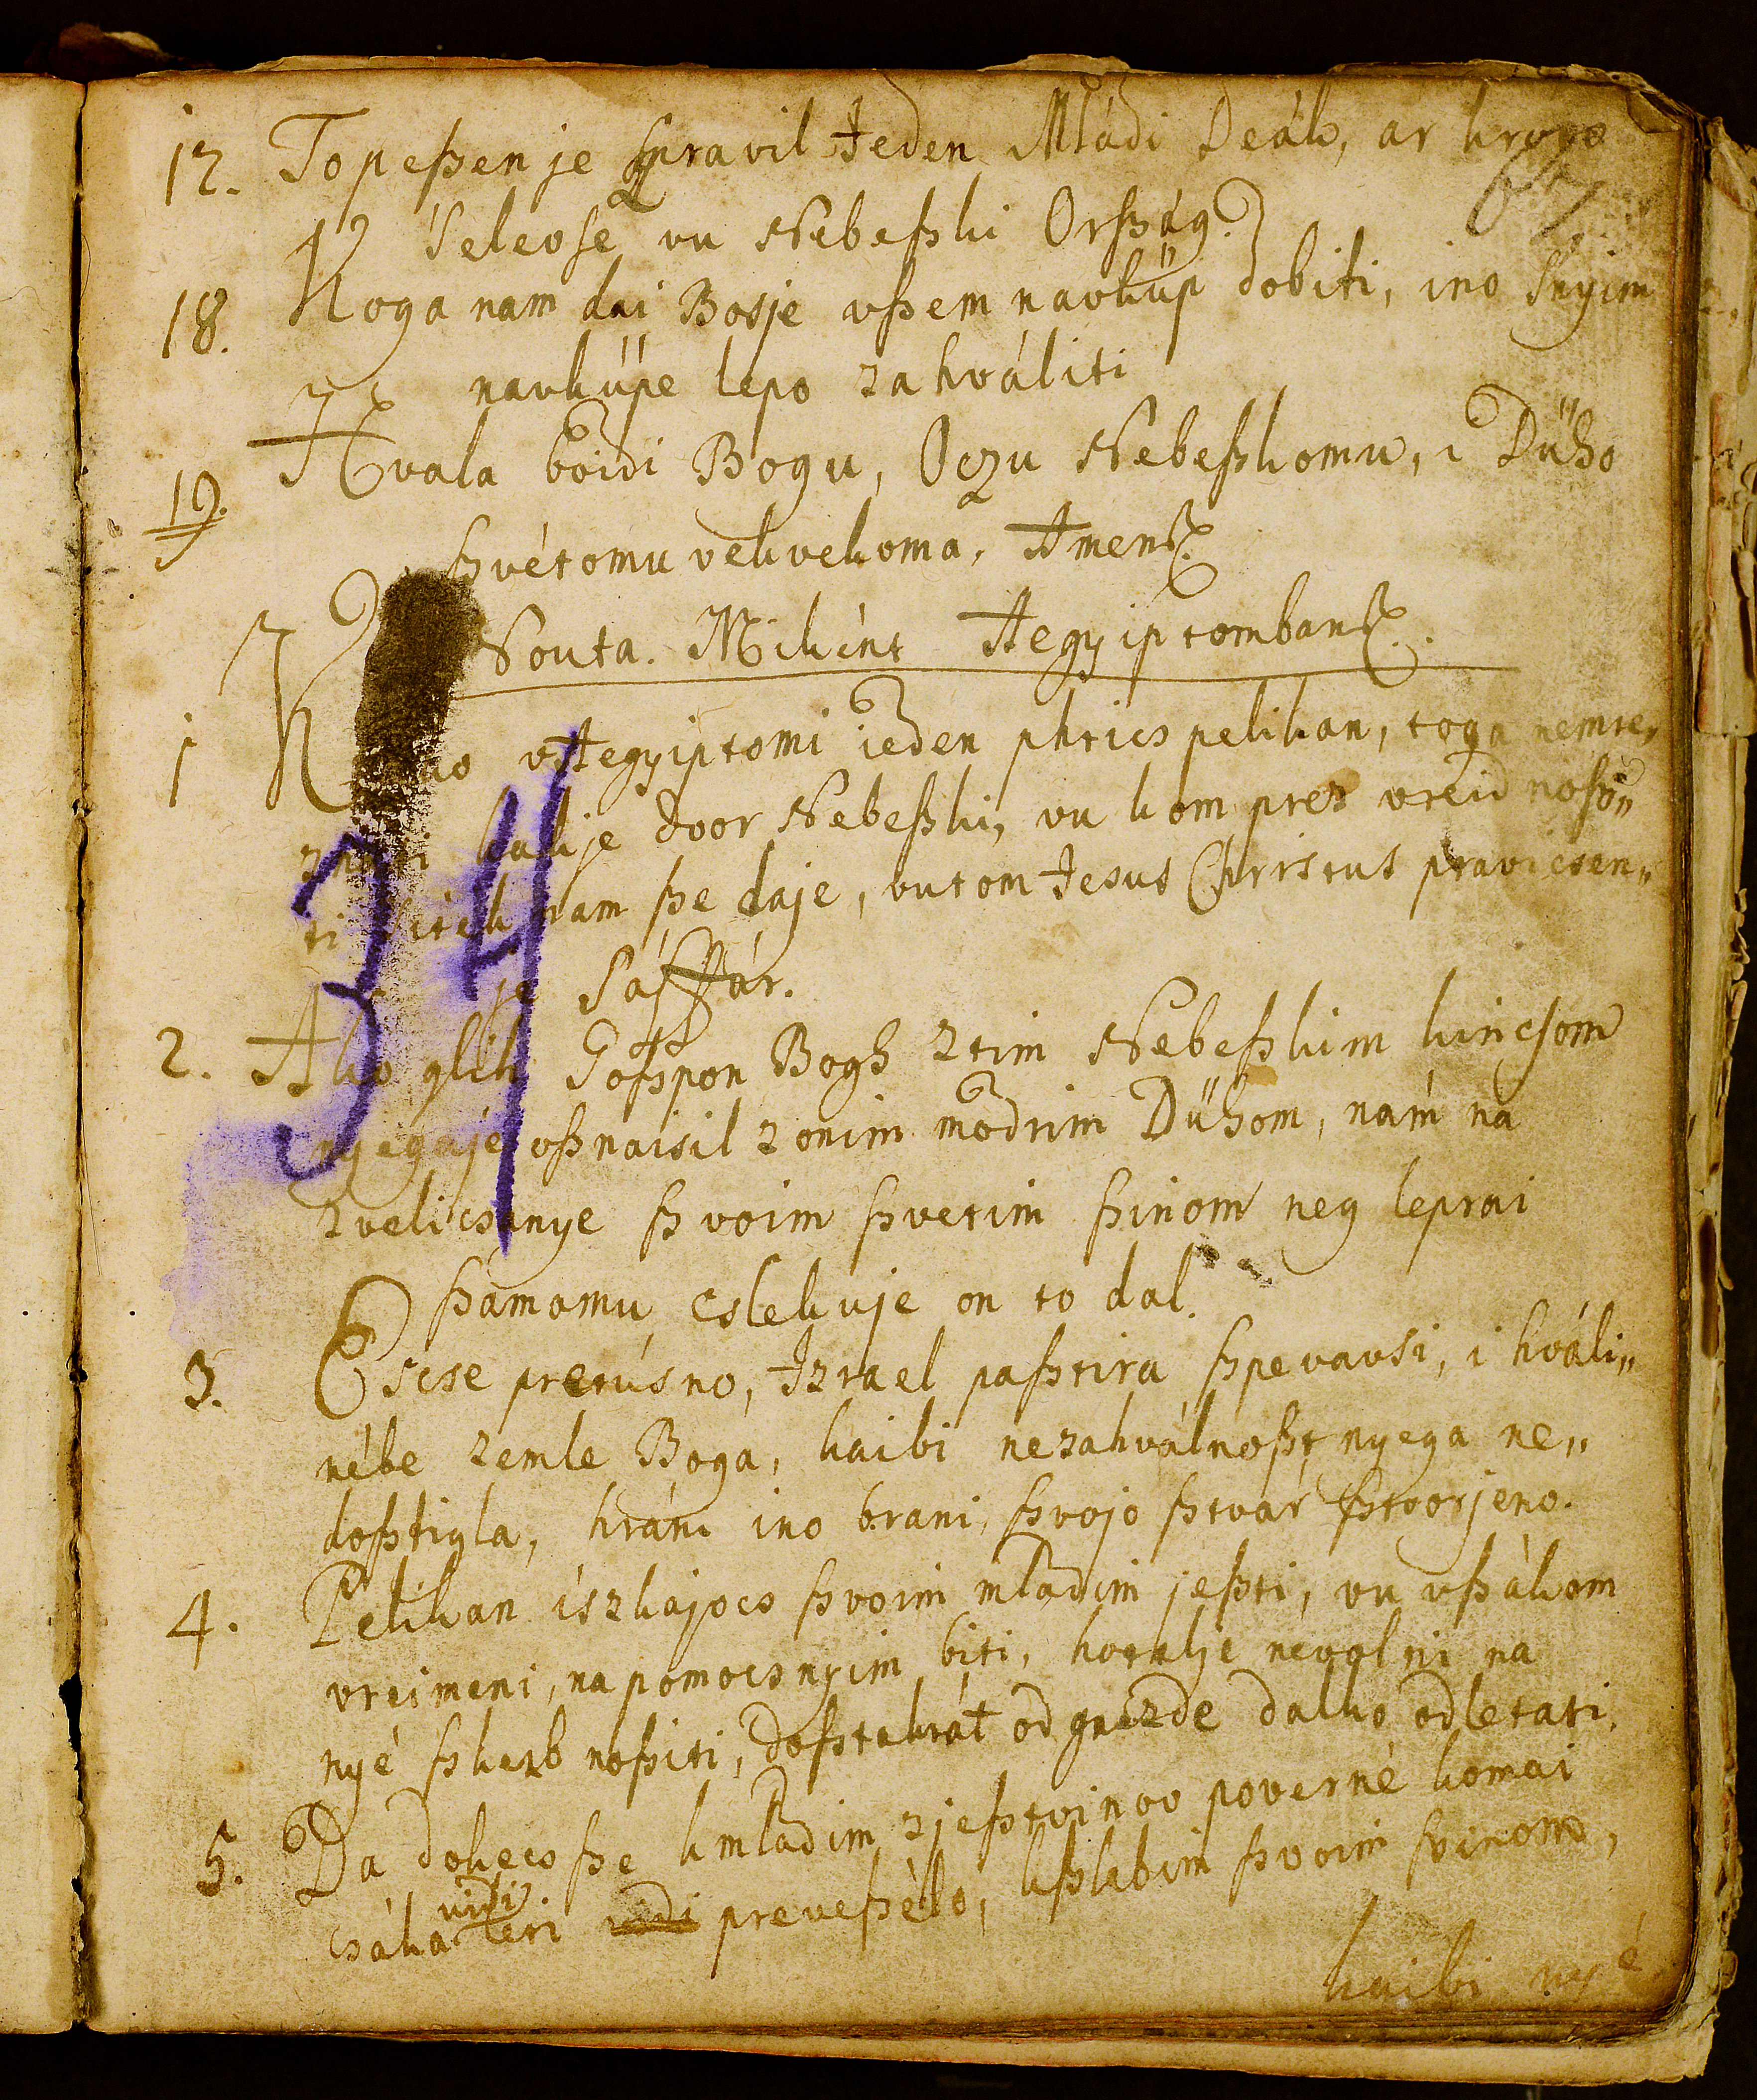 17. To peßen je ßpravil Jeden Mládi Deák, ar kroga
67
Seleose vu Nebeßki Orßág.
18. Koga nam dai Bosje vßem navküp dobiti, ino snyim
navküpe lepo zahváliti
19. Hvala boidi Bogu, Oczu Nebeßkomu, i Dűho
ßvétomu vekvekoma, Amen.
Nouta. Miként Aegyiptomban.
1 vAegyiptomi ieden phtics pelikan, toga nemre„
je dvor Nebeßki, vu kom prez vreid noßv„
ti nam ße daje, vutom Jesus Christus pravicsen„
je Sáffár.
2. Ako glih Goßpon Bogh ztim Nebeßkim kincsom
nyegáje oßnaisil zonim modrim Dűhom, nám na
zvelicsanye ßvoim ßvetim ßinom neg leprai
ßámomu cslekuje on to dal.
3. Escse pretüsno, Izrael paßtira ßpevavsi, i hváli„
nébe zemle Boga, kaibi nezahválnoßt nyega ne„
doßtigla, hráni ino brani, ßvojo ßtvár ßtvorjeno.
4. Pelikan iszkajocs ßvoim mladim jeßti, vu vßákom
vreimeni, napomocs nyim biti, kotrlje nevolni na
nyé ßkerb noßiti, doßtakrát od gnézde dalko odletati.
5. Da dokecs ße kmladim zjeßtvinov poverné komai
csáka vidi teri vidi preveßélo, kßlabim ßvoim ßinom,
kaibi nyé
34